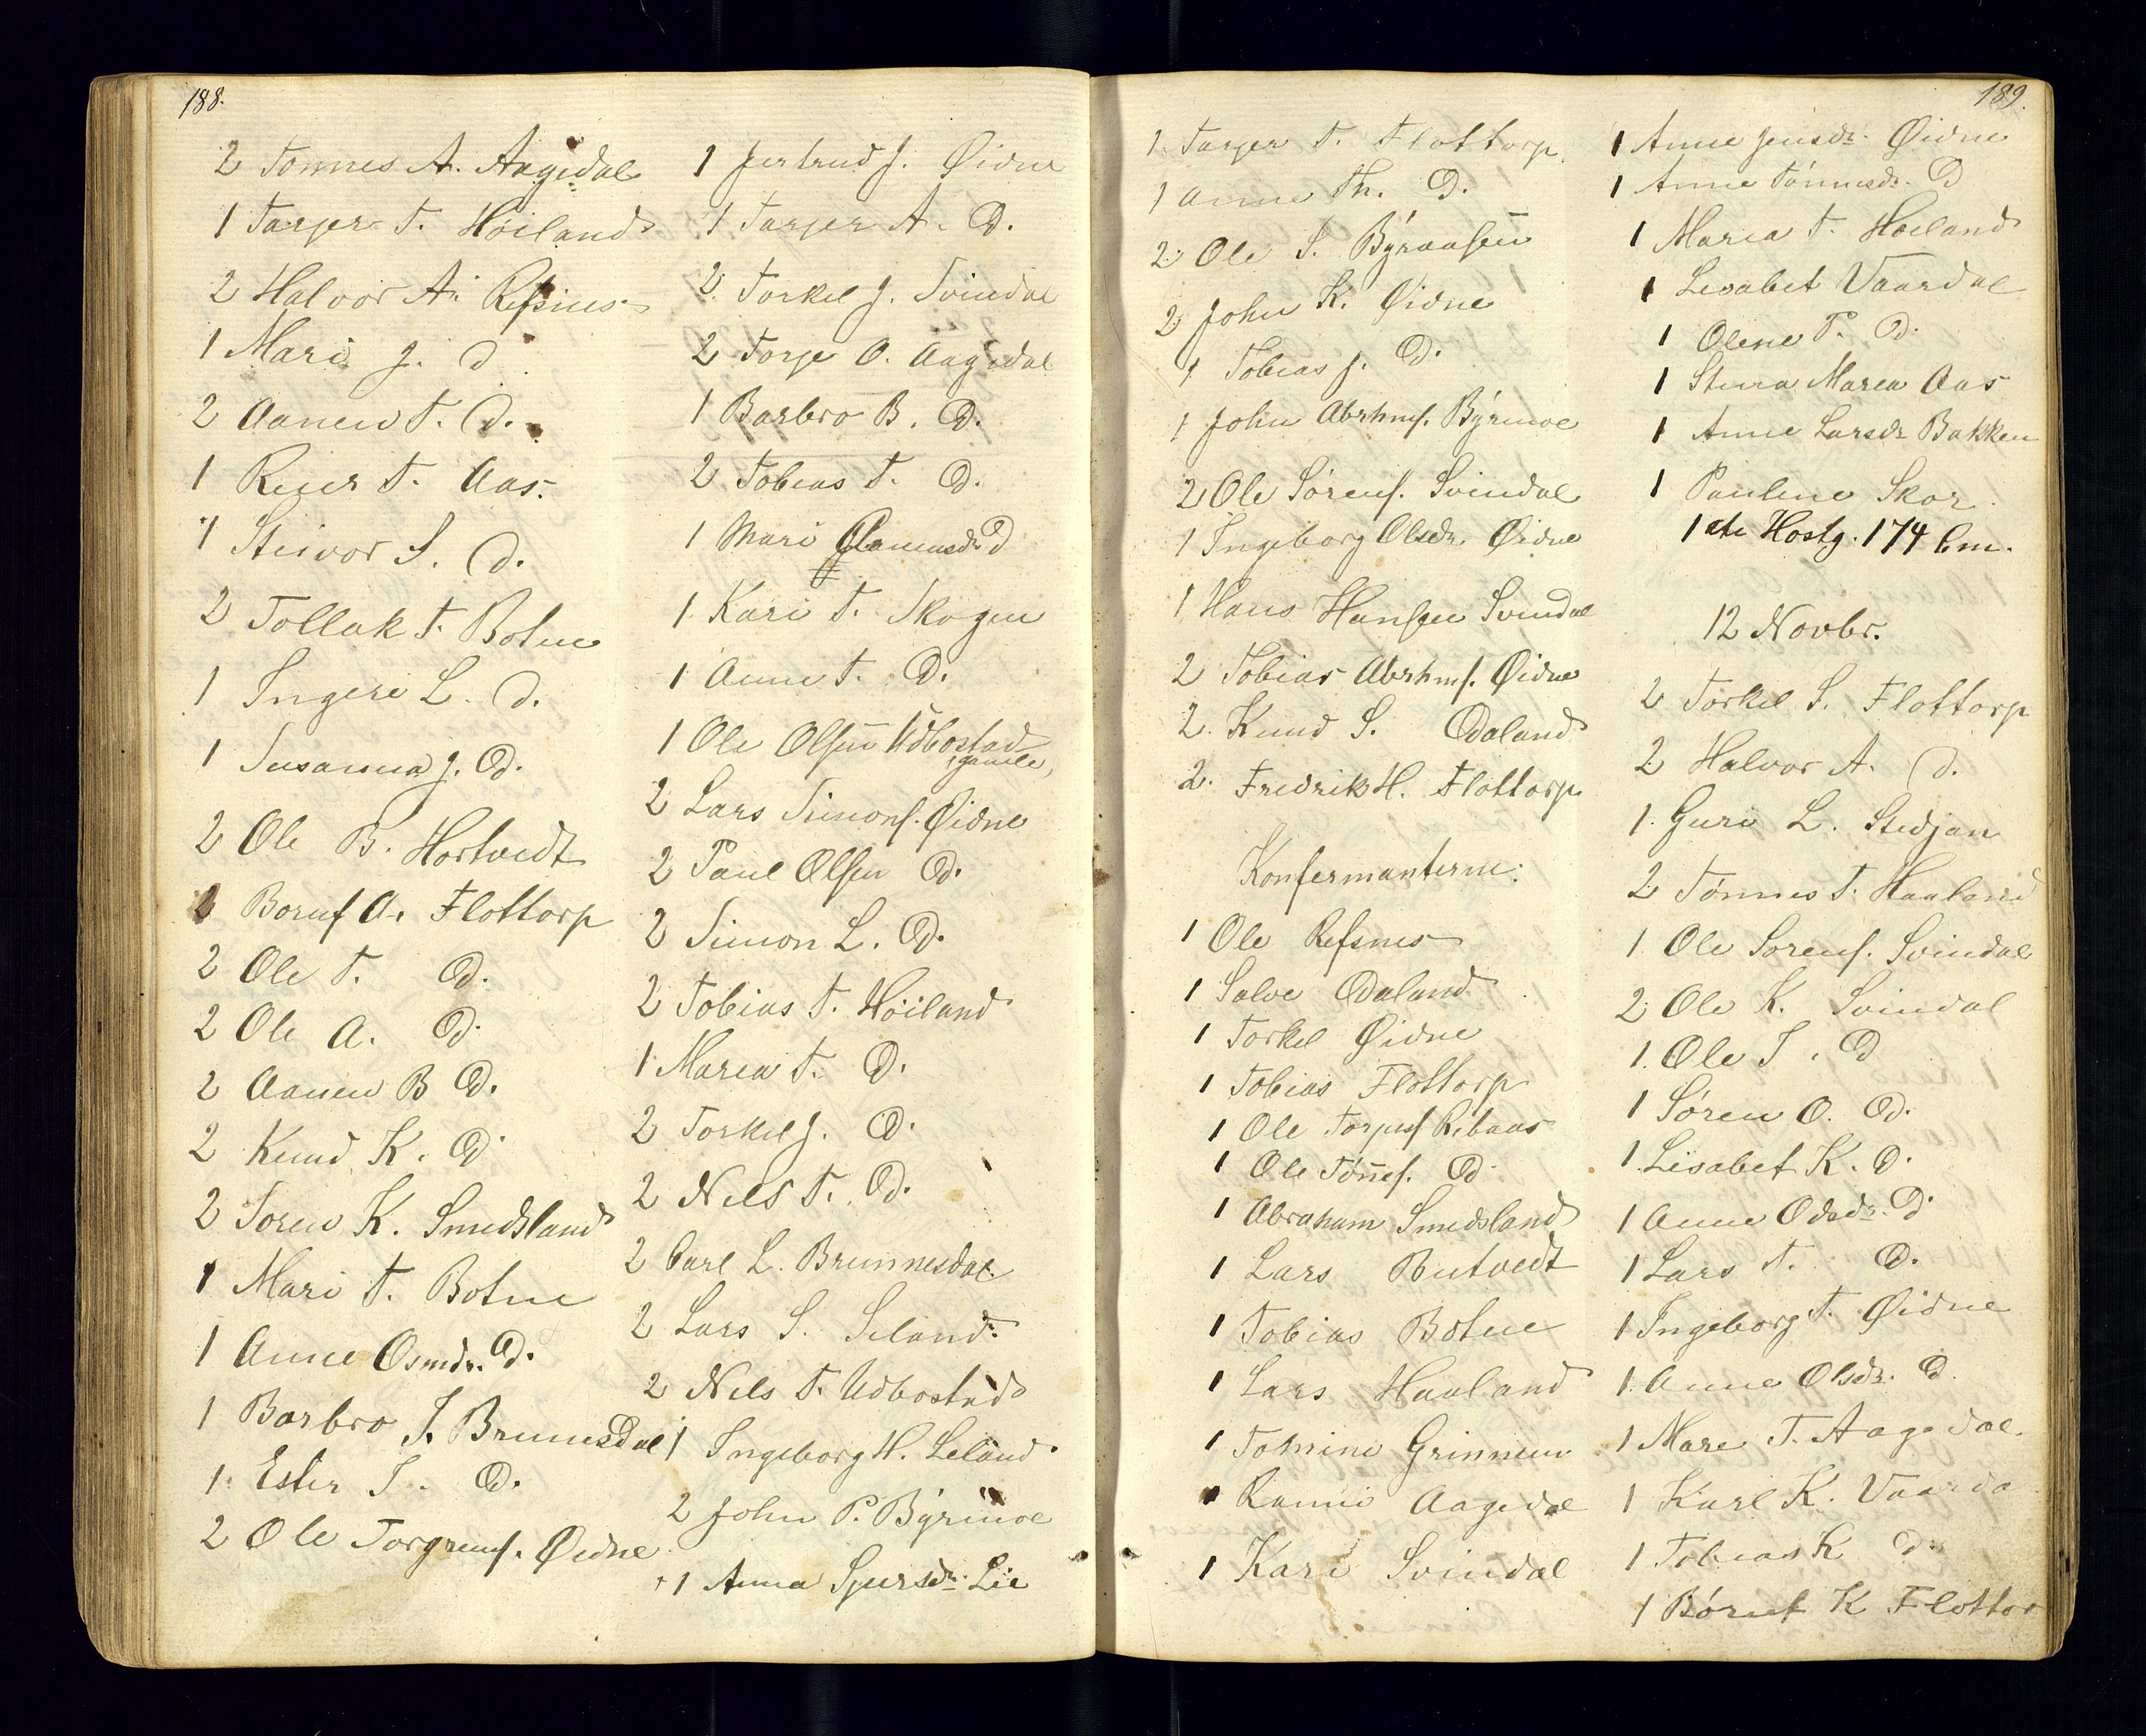 188.
2 Tønnes A. Aagedal
1 Tarjer T. Høiland
2 Halvor A. Refsnes
1 Mari J. d
2 Aanen T. D.
1 Reier T. Aas.
1 Steivor S. D.
2 Tollak T. Botne
1 Ingeri L. D.
1 Susanna J. D.
2 Ole B. Hortvedt
2 Boruf A. Flottorp
2 Ole T. D.
2 Ole A. D.
2 Aanen B D.
2 Knud K. D.
2 Søren K. Smedsland
1 Mari T. Botne
1 Anne Osmdr. D.
1 Barbro J. Brunnesdal
1 Ester T. D.
2 Ole Torgrimsf. Øidne
1 Jertrud J. Øidne
1 Tarjer A. D.
2 Torkel J. Svindal
2 Torje O. Aagedal
1 Barbro B. D.
2 Tobias T. D.
1 Mari D
1 Kari T. Skogen
1 Anne T. D.
1 Ole Olsen Udbostad
gamle,
2 Lars Simonf. Øidne
2 Paul Olsen D.
2 Simon L. D.
2 Tobias T. Høiland
1 Maria T. D.
2 Torkel J. D.
2 Nils T. D.
2 Carl L. Brunnesdal
2 Lars S. Leland
2 Nils T. Udbostad
1 Ingeborg H. Leland
2 John P. Byrmoe
1 Anna Sjursdr. Lie
189.
1 Tarjer T. Flottorp.
1 Anne Th. D.
2 Ole S. Byraasen
2 John K. Øidne
1 Tobias J. D.
1 John Abrhmf. Byrmoe
2 Ole Sørenf. Svindal
1 Ingeborg Olsdr. Øidne
1 Hans Hansen Svindal
2 Tobias Abrhmf. Øidne
2 Knud S. Odaland
2 Fredrik H. Flottorp
Konfermanterne:
1 Ole Refsnes
1 Salve Odaland
1 Torkel Øidne
1 Tobias Flottorp
1 Ole Torjusf Ribaas
1 Ole Tønnesf. D
1 Abraham Smedsland
1 Lars Butvedt
1 Tobias Botne
1 Lars Haaland
1 Tomine Grinnem
1 Rannei Aagedal
1 Kari Svindal
1 Anne Jensdr. Øidne
1 Anne Tønnesdr. D
1 Maria T. Høiland
1 Lisabet Vaardal
1 Olene P. D.
1 Stina Maria Aas
1 Anne Larsdr Bakken
1 Pauline Skar
1ste Hostg. 174 Cm.
12 Novbr.
2 Torkel S. Flottorp
2 Halvor A. D.
1 Guri L. Stedjan
2 Tønnes T. Haaland
1 Ole Sørenf. Svindal
2 Ole K. Svindal
1 Ole T. D
1 Søren O. D.
1 Lisabet K. D.
1 Anne Odsdr. D
1 Lars T. D.
1 Ingeborg T. Øidne
1 Anne Olsdr. D.
1 Mari T. Aagedal
1 Karl K. Vaarda
1 Tobias K D
1 Børuf K Flottor